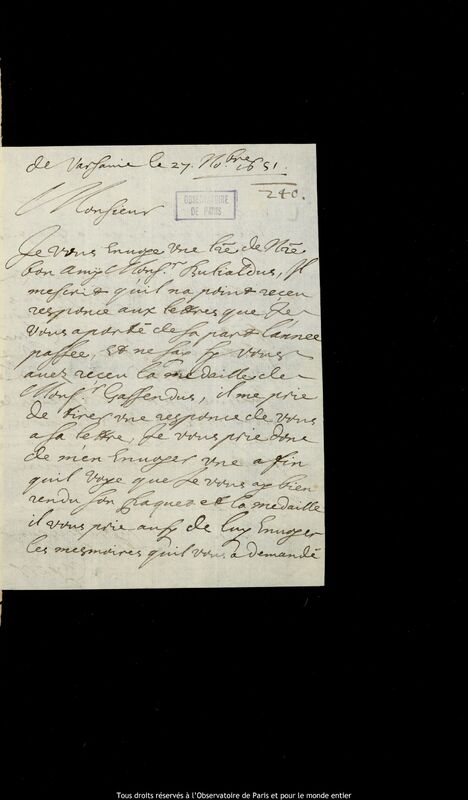 de Varsavie le 27. No.bre 1651.
240.
OBSERVATOIRE
DE PARIS
Monsieur
Je vous Envoye vne lre de Nre
bon Amy Mons.r Bulialdus, Il
mescrit quil na point receu
responce aux lettres que Je
vous aporté de sa part l'annee
passée, et ne say sy vous
avez receu la medaille de
Mons.r Gassendus, il me prie
de tirer vne responce de vous
a sa lettre, Je vous prie donc
de m'en Envoyer vne afin
quil voye que Je vous ay bien
rendu son paquet et la medaille
il vous prie aussy de luy Envoyer
les mesmoires quil vous a demandé
Tous droits réservés à l'Observatoire de Paris et pour le monde entier